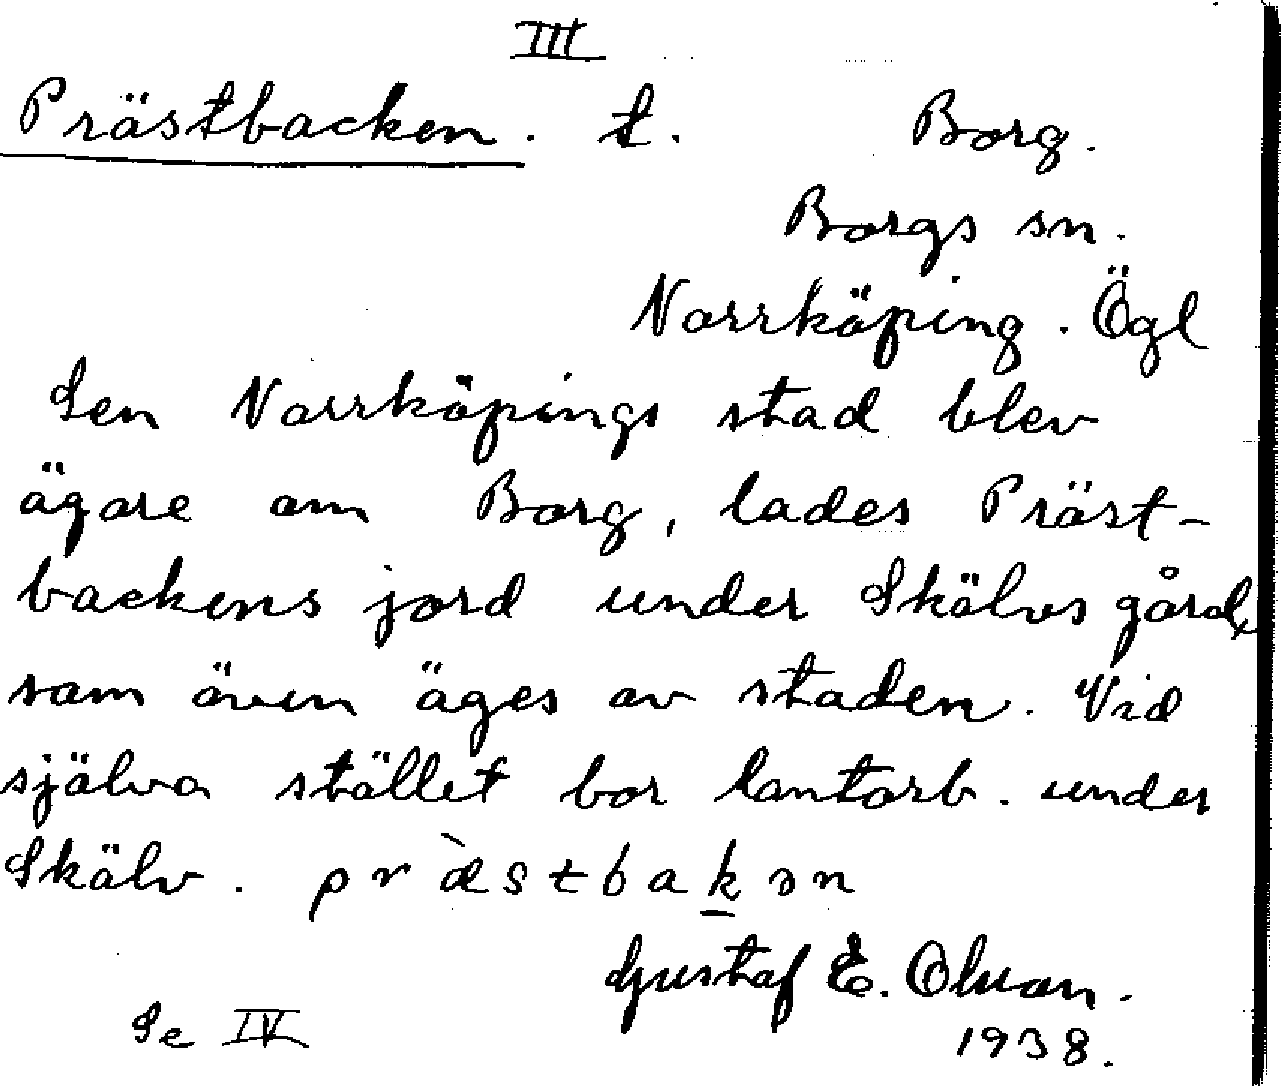 III
Prästbacken. t. Borg.
Borgs sn.
Norrköping. Ögl
Sen Norrköpings stad blev
ägare om Borg, lades Präst-
backens jord under Skälvs gård,
som även äges av staden. Vid
själva stället bor lantarb. under
Skälv. pr̀æstbak̲ən
Gustaf E. Olsson.
Se IV 1938.